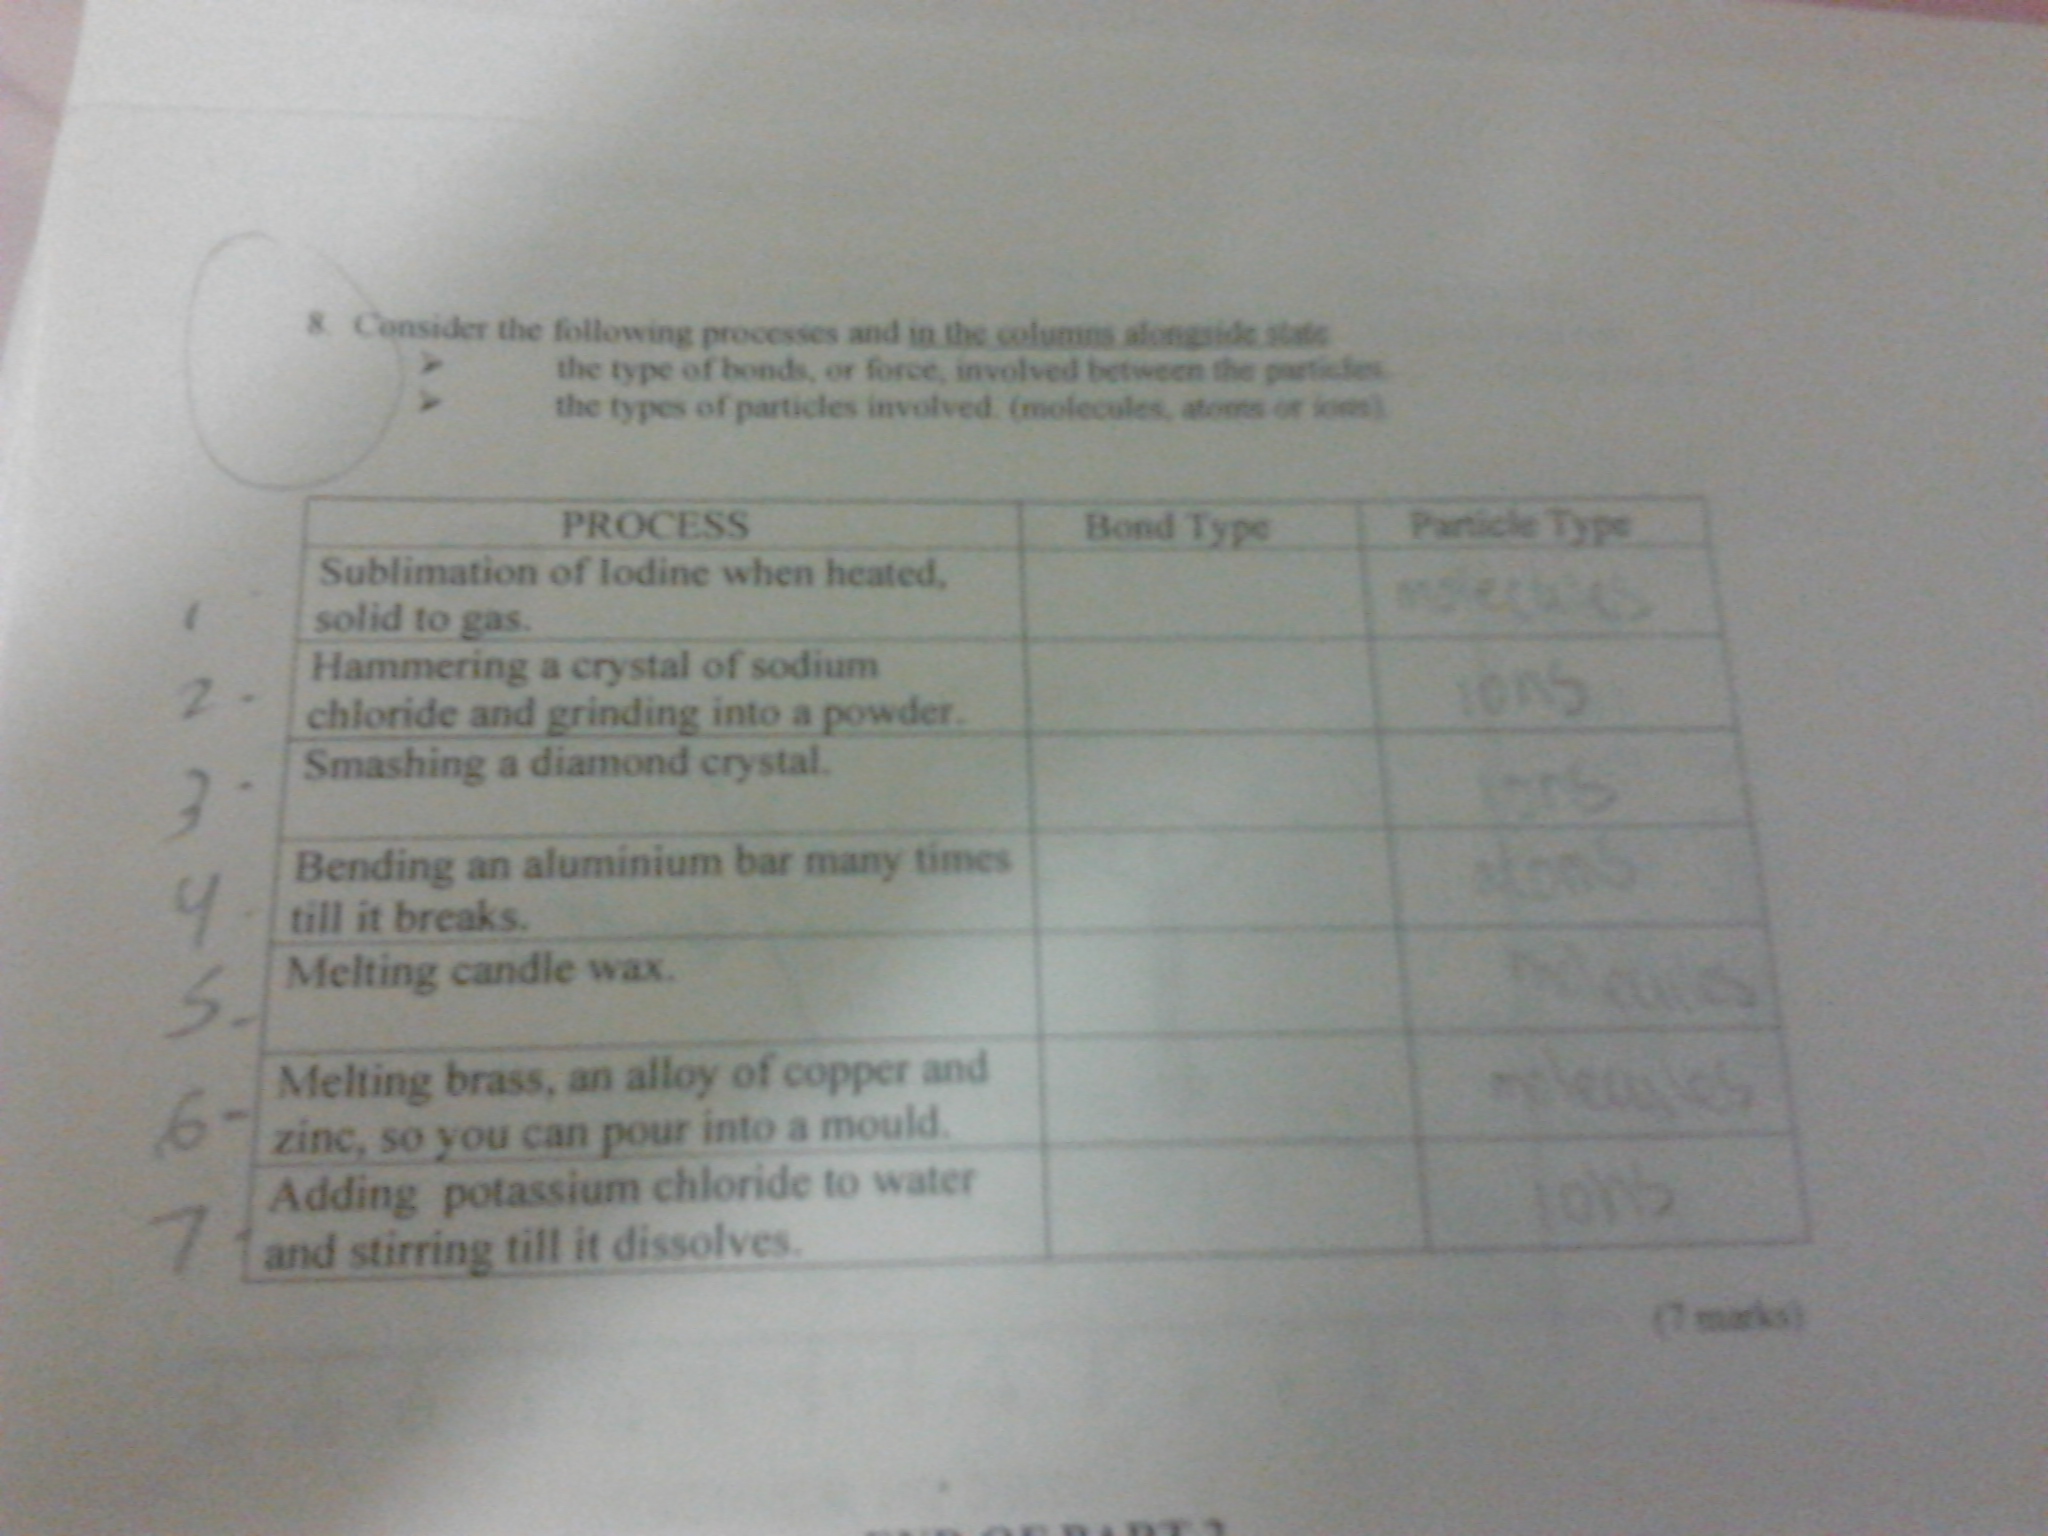 8. Consider the following processes and in the columns alongside state
➤ the type of bonds, or force, involved between the particles.
➤ the types of particles involved. (molecules, atoms or ions).
PROCESS Bond Type Particle Type
1 - Sublimation of Iodine when heated, molecules
solid to gas.
2 - Hammering a crystal of sodium ions
chloride and grinding into a powder.
3 - Smashing a diamond crystal. ions
4 - Bending an aluminium bar many times atoms
till it breaks.
5 - Melting candle wax. molecules
6 - Melting brass, an alloy of copper and molecules
zinc, so you can pour into a mould.
7 - Adding potassium chloride to water ions
and stirring till it dissolves.
(7 marks)
END OF PART 2